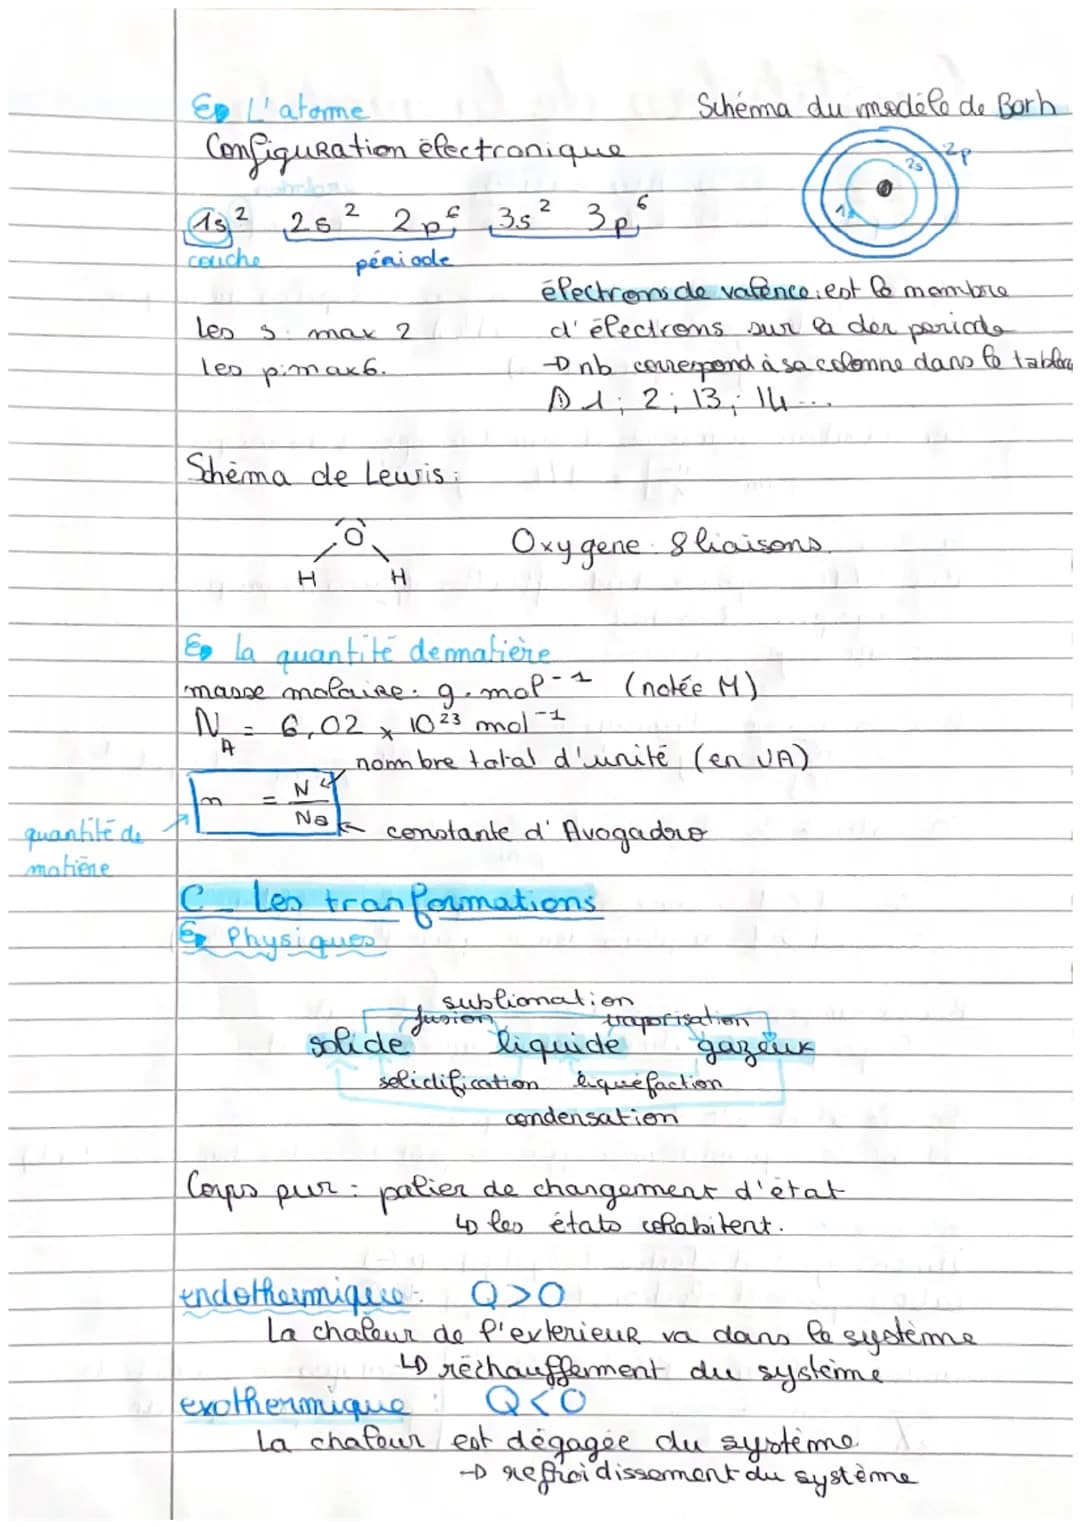 L'atome
Schéma du modèle de Borh
Configuration électronique
1s² 2s² 2p⁶ 3s² 3p⁶
couche période
1s 2s 2p
électrons de valence : est le nombre
les s : max 2
d'électrons sur la der periode
les p : max 6.
→ nb correspond à sa colonne dans le tableau
1 ; 2 ; 13 ; 14 ...
Schéma de Lewis :
O
H H
Oxygene : 8 liaisons.
la quantité de matière
masse molaire : g.mol⁻¹ (notée M)
N_A = 6,02 × 10²³ mol⁻¹
nombre total d'unité (en UA)
n = N / Na
quantité de
matière
constante d'Avogadro
C - Les tranformations
Physiques
sublimation
fusion vaporisation
solide liquide gazeux
solidification liquéfaction
condensation
Corps pur : palier de changement d'état
↳ les états cohabitent.
endothermique : Q>0
La chaleur de l'exterieur va dans le système
↳ réchauffement du système
exothermique : Q<0
La chaleur est dégagée du système
→ refroidissement du système